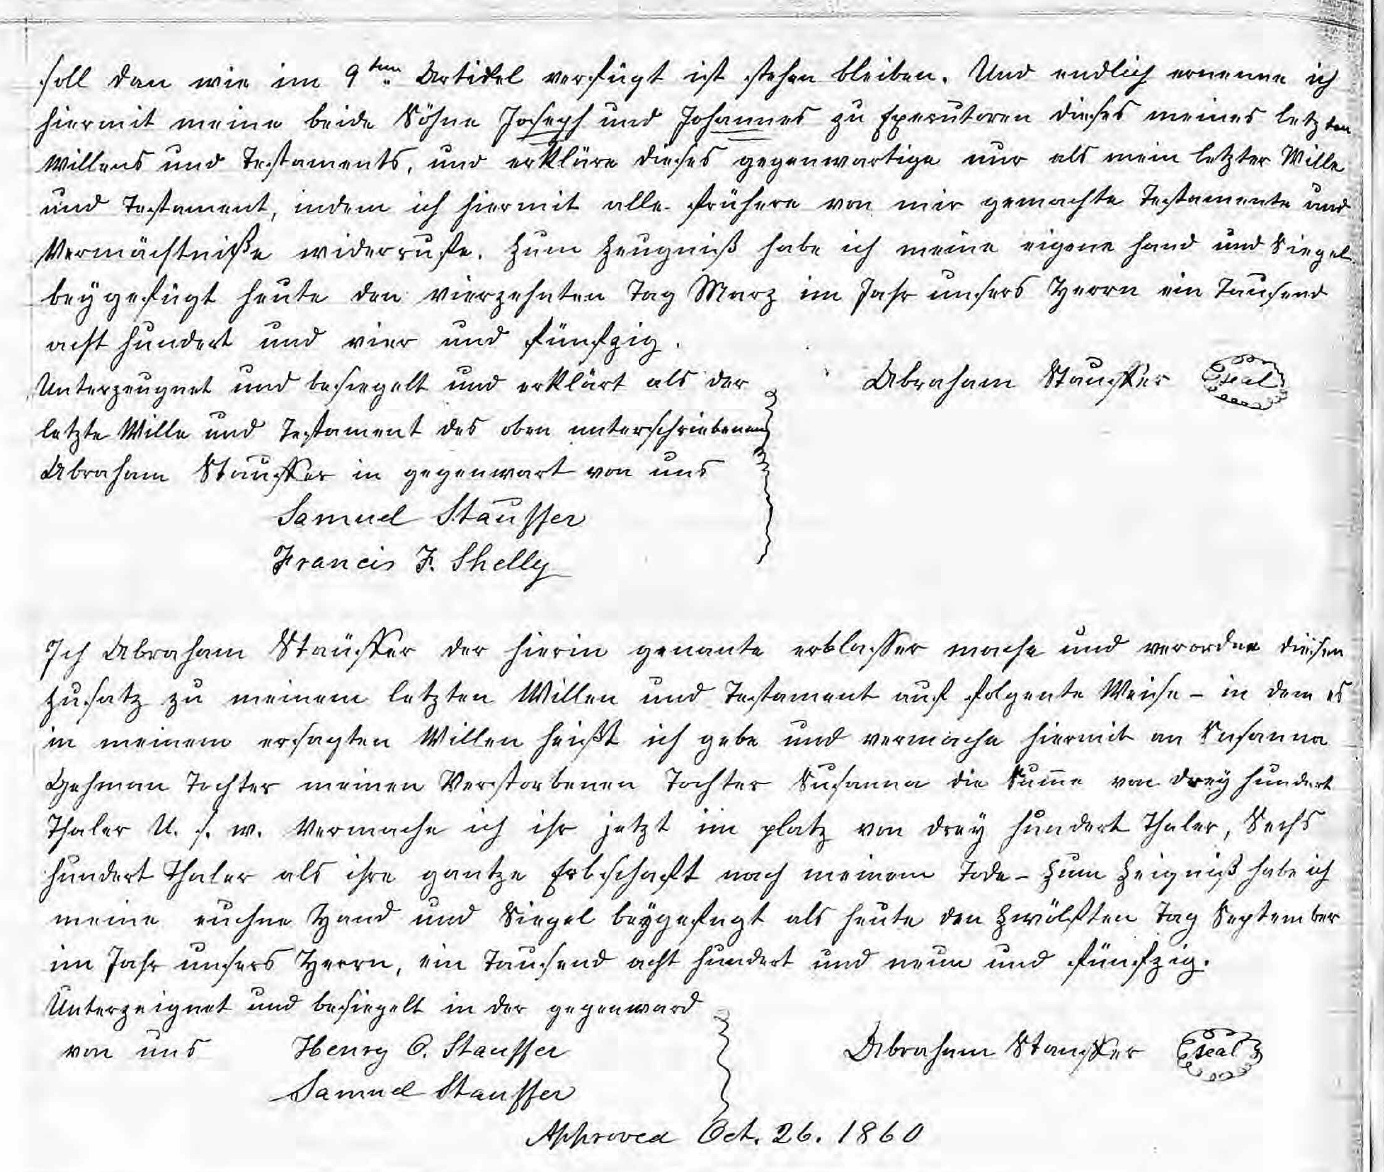 soll dan wie im 9ten Artickel verfügt ist stehen bleiben. Und endlich ernenne ich
hiermit meine beide Söhne Joseph und Johannes zu Executoren dieses meines letzten
Willens und Testaments, und erkläre dieses gegenwartige nur als mein letzter Wille
und Testament, indem ich hiermit alle frühere von mir gemachte Testamente und
Vermächtniße widerrufe. Zum Zeugniß habe ich meine eigene Hand und Siegel
beygefügt heute den vierzehnten Tag Marz im Jahr unsers Herrn ein Tausend
acht hundert und vier und fünfzig.
Unterzeugnet und besiegelt und erklärt als der
letzte Wille und Testament des oben unterschriebenen
Abraham Stauffer in gegenwart von uns
Abraham Stauffer Seal
Samuel Stauffer
Francis F. Shelly
Ich Abraham Stauffer der hierin genante erblasser mache und verordne diesen
Zusatz zu meinem letzten Willen und Testament auf folgente Weise – in dem es
in meinem ersagten Willen heißt ich gebe und vermache hiermit an Susanna
Gehman Tochter meinen Verstorbenen Tochter Susanna die Sum̅e von drey hundert
Thaler U. s. w. Vermache ich ihr jetzt im platz von drey hundert Thaler, Sechs
hundert Thaler als ihre gantze Erbschaft nach meinem Tode – Zum Zeigniß habe ich
meine euchne Hand und Siegel beygefugt als heute den Zwölften Tag September
im Jahr unsers Herrn, ein Tausend acht hundert und neun und fünfzig.
Unterzeignet und besiegelt in der gegenward
von uns Henry O. Stauffer
Abraham Stauffer Seal
Samuel Stauffer
Approved Oct. 26. 1860